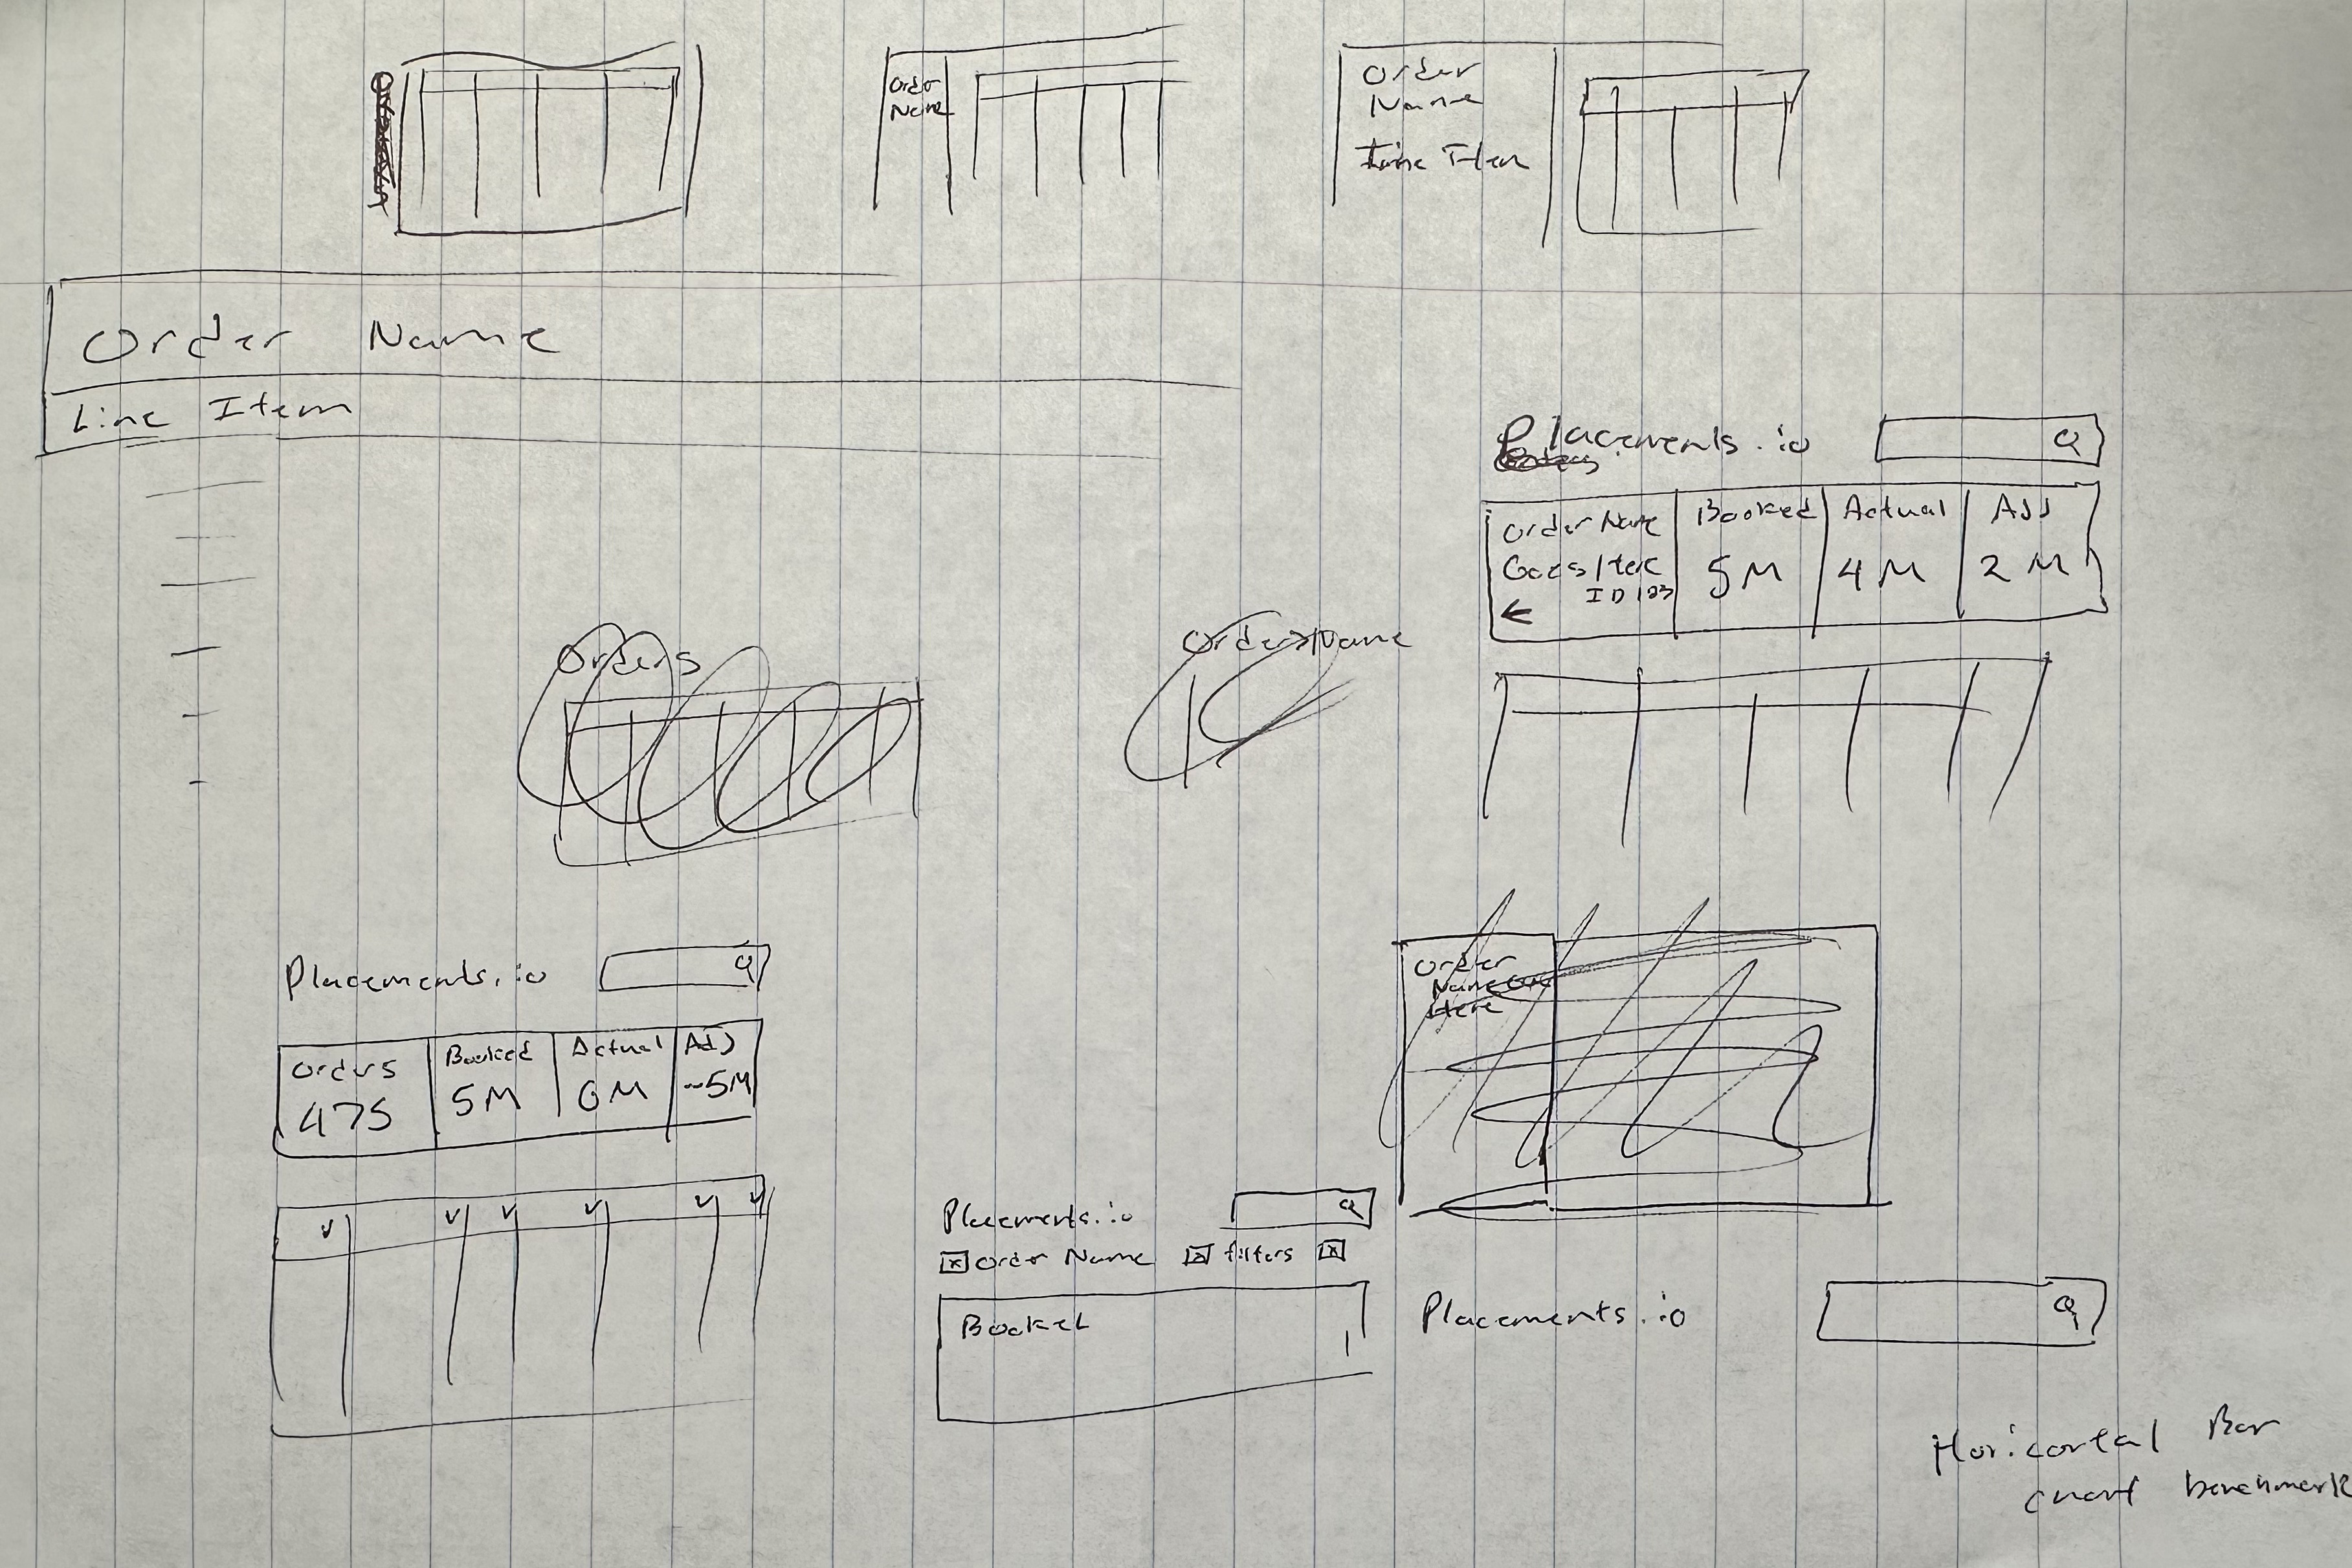 Order
Name
Order
Name
Line Item
Order Name
Line Item
Placements.io
Order Name
Goes here
ID 123
Booked
5M
Actual
4M
Adj
2M
Orders
Order Name
Placements.io
Orders
475
Booked
5M
Actual
0M
Adj
-5M
Order
Name
Here
Placements.io
Order Name
filters
Booked
Placements.io
Horizontal Bar
chart benchmark